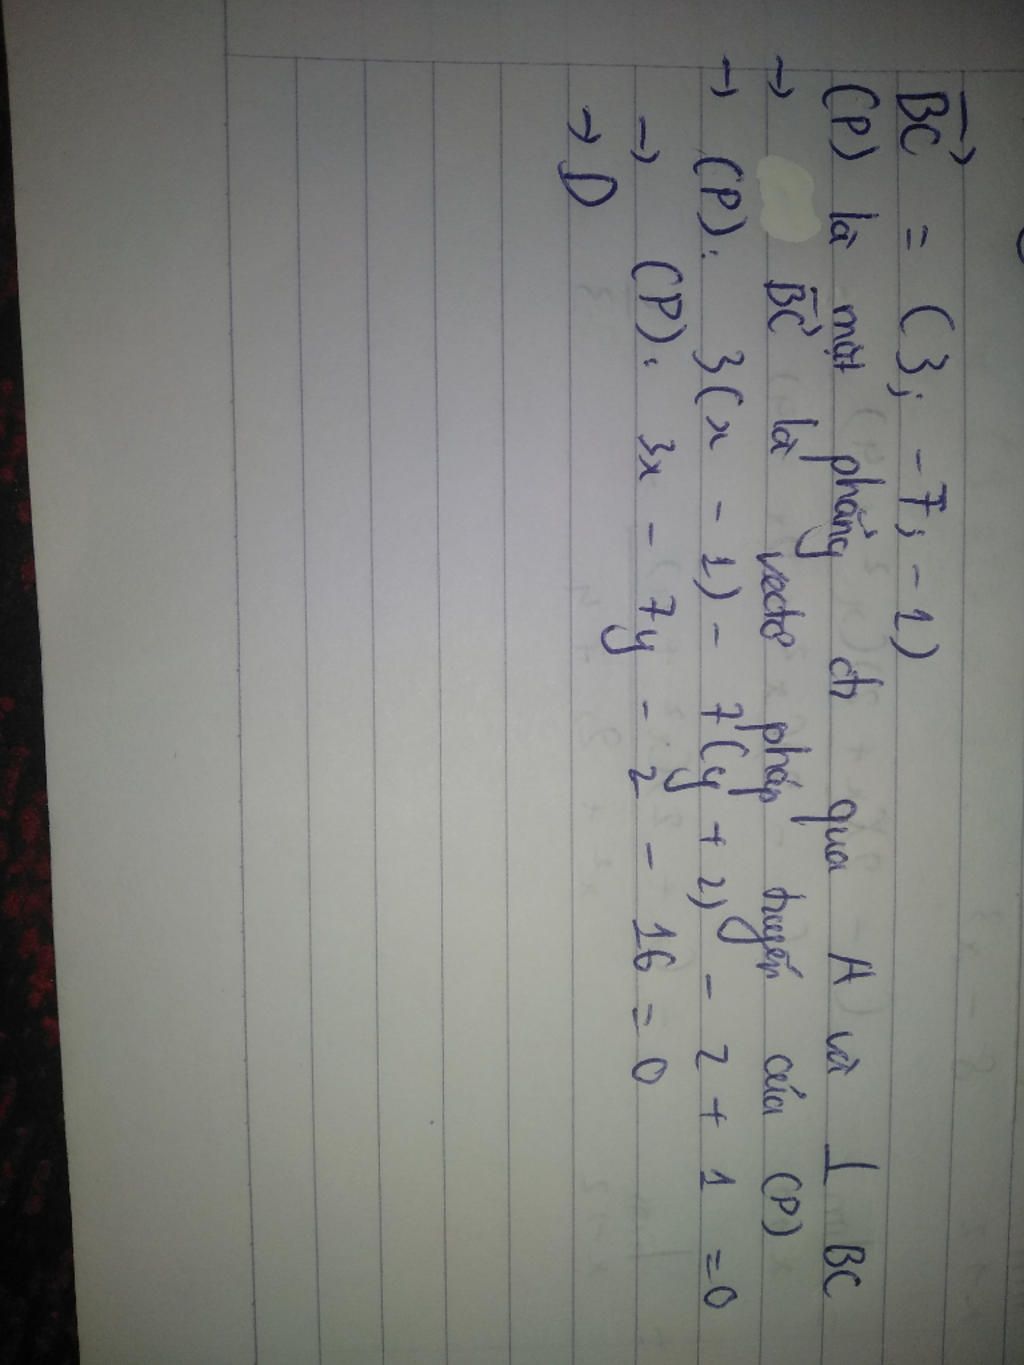 BC→ = (3; -7; -1)
(P) là mặt phẳng đi qua A và ⊥ BC
→ BC→ là vectơ pháp tuyến của (P)
→ (P): 3(x - 1) - 7(y + 2) - z + 1 = 0
→ (P): 3x - 7y - z - 16 = 0
→ D